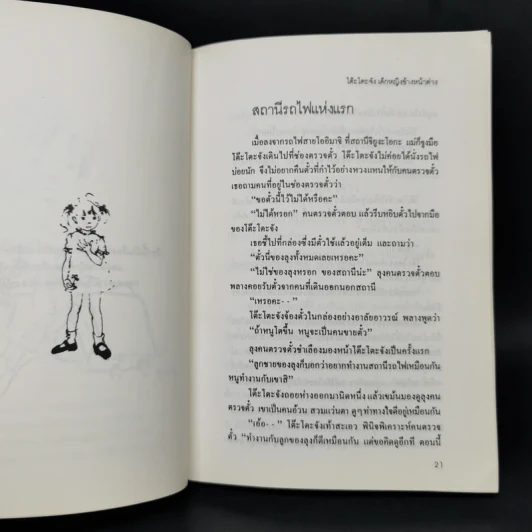 โต๊ะโตะจัง เด็กหญิงข้างหน้าต่าง
สถานีรถไฟแห่งแรก
เมื่อลงจากรถไฟสายโออิมาจิ ที่สถานีจิยูงะโอกะ แม่ก็จูงมือ
โต๊ะโตะจังเดินไปที่ช่องตรวจตั๋ว โต๊ะโตะจังไม่ค่อยได้นั่งรถไฟ
บ่อยนัก จึงไม่อยากคืนตั๋วที่กำไว้อย่างหวงแหนให้กับคนตรวจตั๋ว
เธอถามคนที่อยู่ในช่องตรวจตั๋วว่า
“ขอตั๋วนี้ไว้ไม่ได้หรือคะ”
“ไม่ได้หรอก” คนตรวจตั๋วตอบ แล้วรีบหยิบตั๋วไปจากมือ
ของโต๊ะโตะจัง
เธอชี้ไปที่กล่องซึ่งมีตั๋วใช้แล้วอยู่เต็ม และถามว่า
“ตั๋วนี่ของลุงทั้งหมดเลยเหรอคะ”
“ไม่ใช่ของลุงหรอก ของสถานีน่ะ” ลุงคนตรวจตั๋วตอบ
พลางคอยรับตั๋วจากคนที่เดินออกนอกสถานี
“เหรอคะ- - ”
โต๊ะโตะจังจ้องตั๋วในกล่องอย่างอาลัยอาวรณ์ พลางพูดว่า
“ถ้าหนูโตขึ้น หนูจะเป็นคนขายตั๋ว”
ลุงคนตรวจตั๋วชำเลืองมองหน้าโต๊ะโตะจังเป็นครั้งแรก
“ลูกชายของลุงก็บอกว่าอยากทำงานสถานีรถไฟเหมือนกัน
หนูทำงานกับเขาสิ”
โต๊ะโตะจังถอยห่างออกมานิดหนึ่ง แล้วเขม้นมองดูลุงคน
ตรวจตั๋ว เขาเป็นคนอ้วน สวมแว่นตา ดูๆท่าทางใจดีอยู่เหมือนกัน
“เอ้อ- - ” โต๊ะโตะจังเท้าสะเอว พินิจพิเคราะห์คนตรวจ
ตั๋ว “ทำงานกับลูกของลุงก็ดีเหมือนกัน แต่ขอคิดดูอีกที ตอนนี้
21